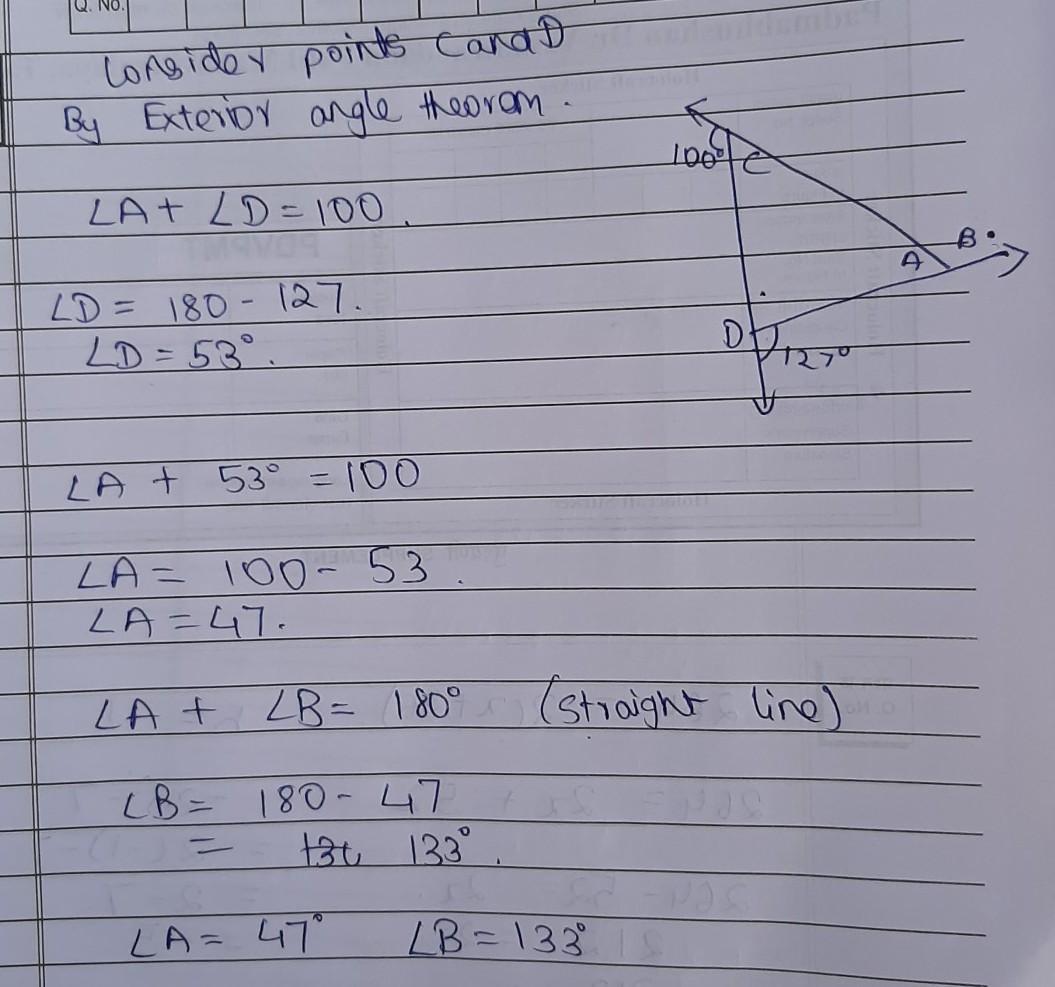 Q. No.
Consider points C and D
By Exterior angle theorom.
100° C
∠A + ∠D = 100.
B
A
∠D = 180 - 127.
D
∠D = 53°.
127°
∠A + 53° = 100
∠A = 100 - 53.
∠A = 47.
∠A + ∠B = 180° (straight line)
∠B = 180 - 47
= 133°.
∠A = 47° ∠B = 133°